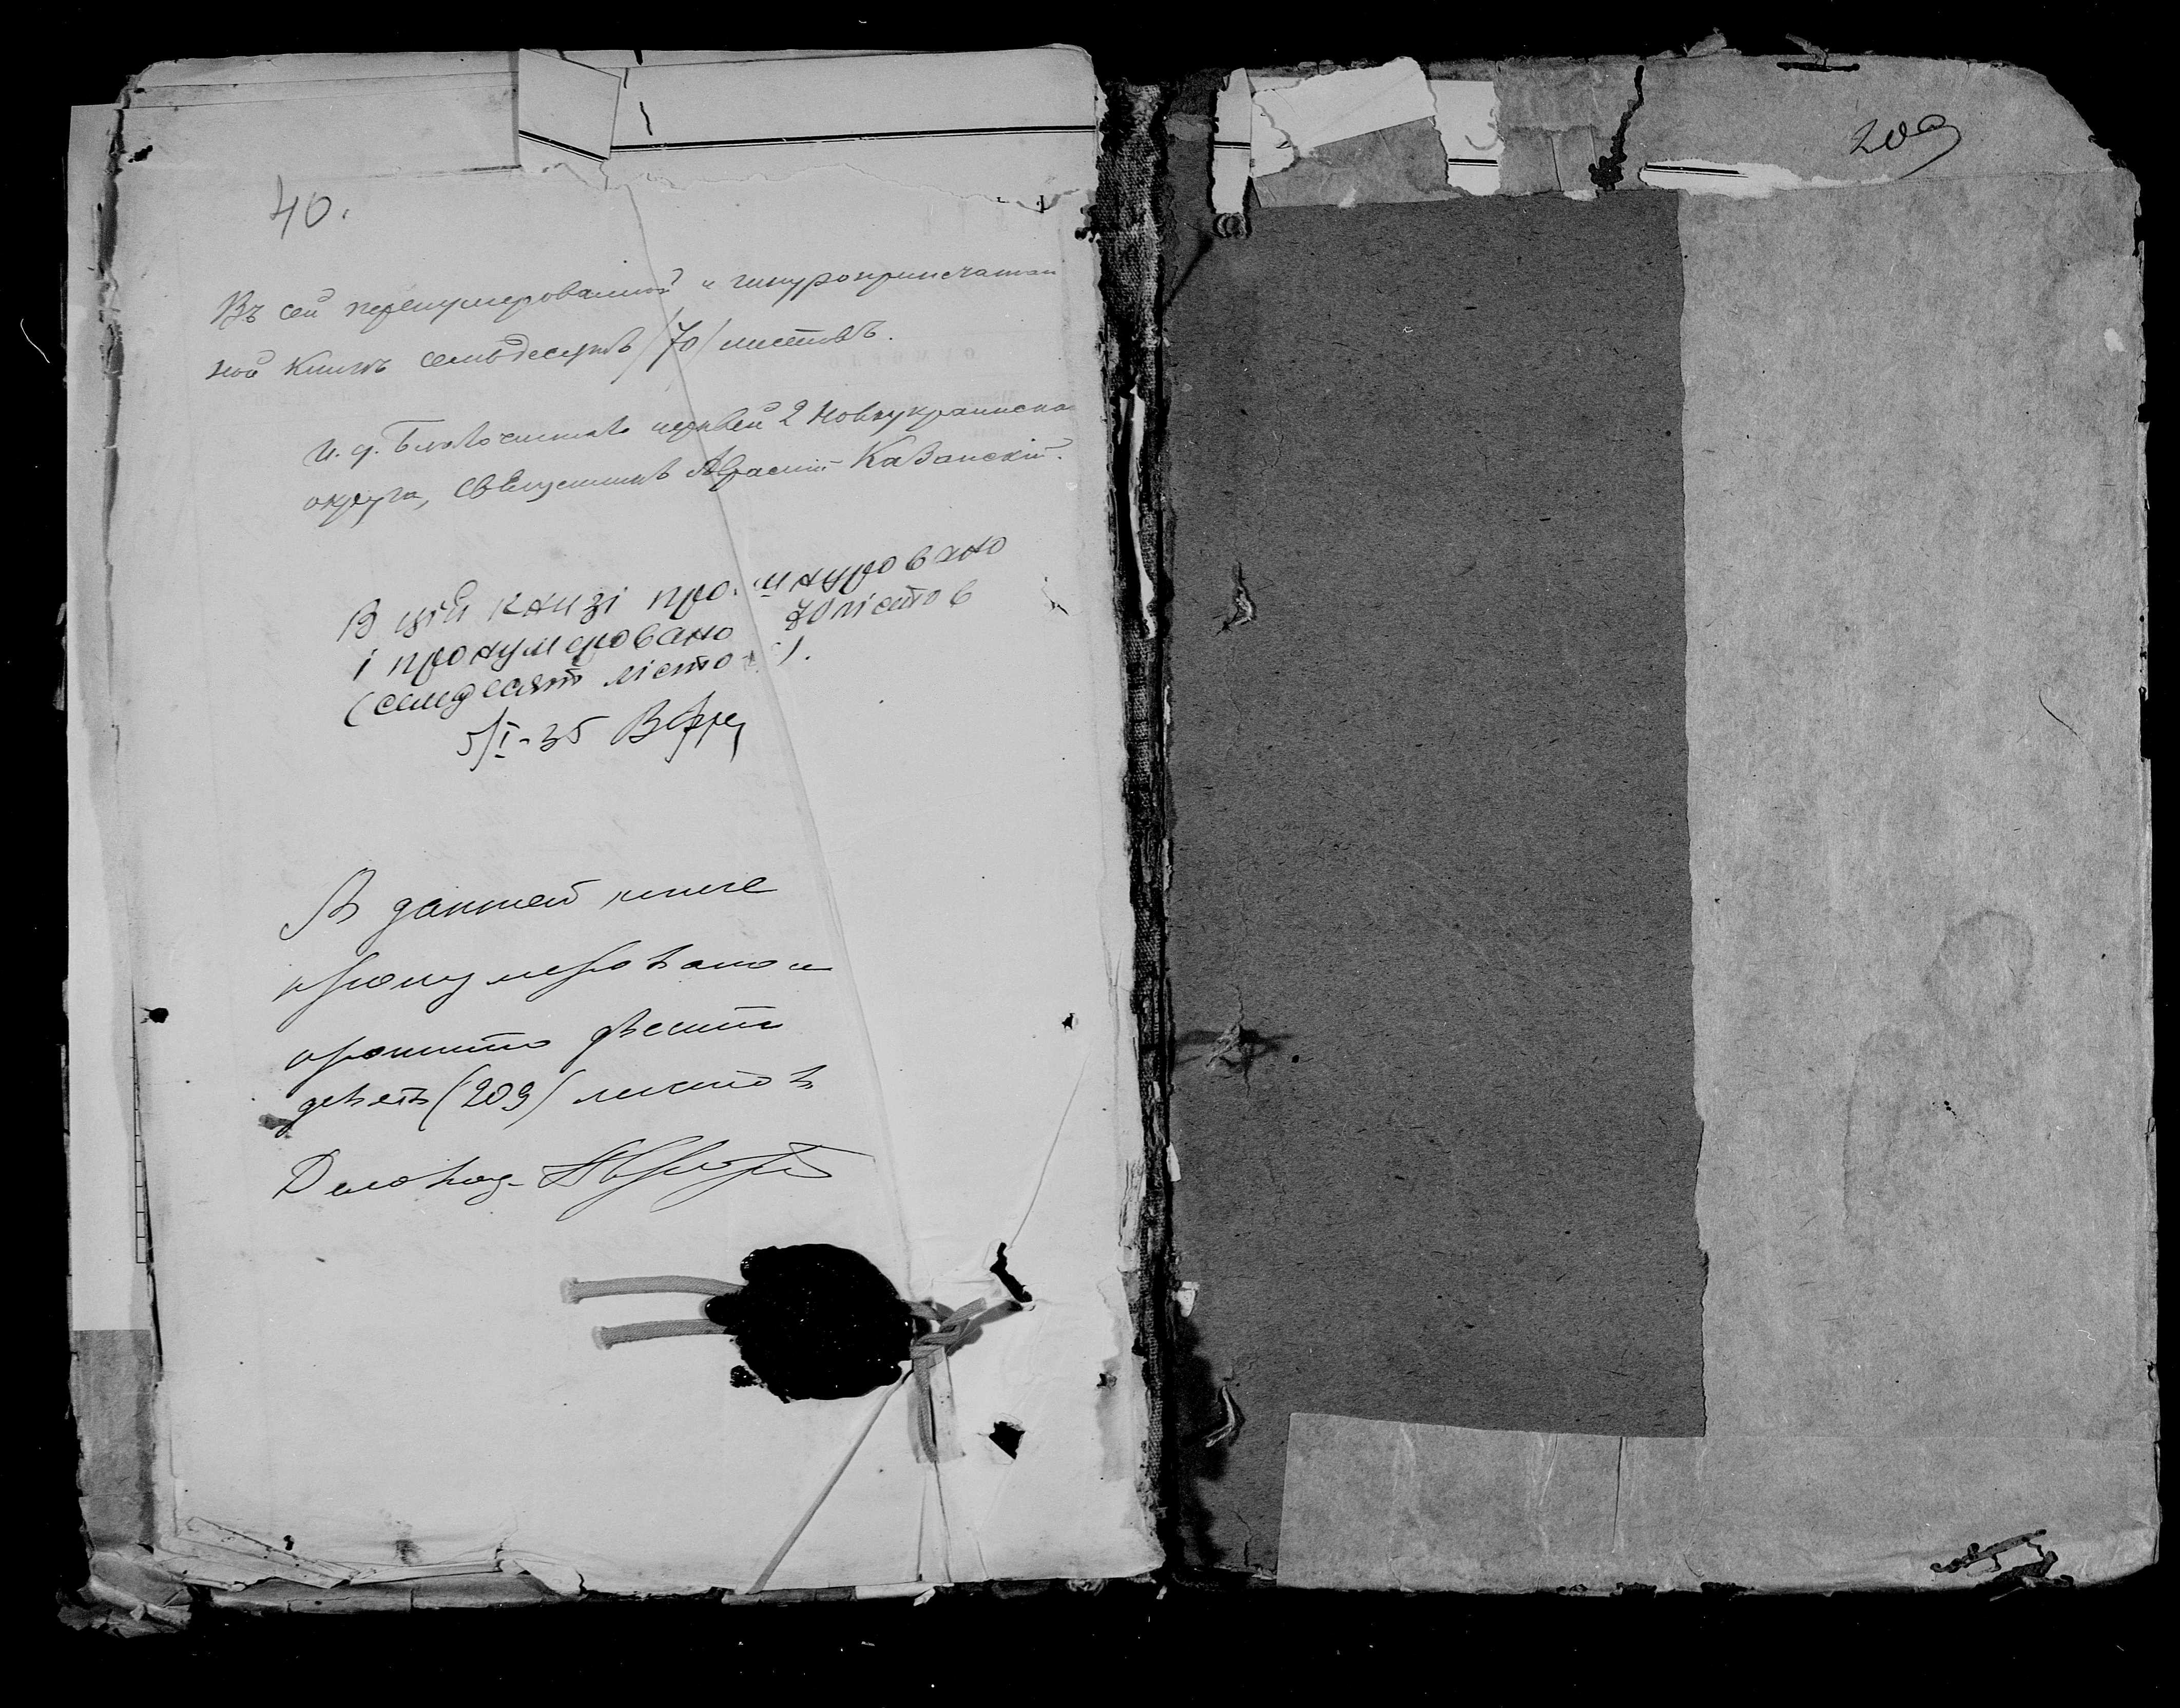 40.
Въ сей перенумерованной и шнуроприпечатан
ной книгѣ семьдесятъ /70/ листовъ.
И. д. Благочиннаго церквей 2 Новоукраинска
округа, Священникъ Казанскій.
В цій книзі про.шнуровано
і пронумеровано 70 лістов
(семдесят лісто ).
5/I-35
В данной книге
пронумеровано и
прошито двести
девять (209) листов
Деловод-
209